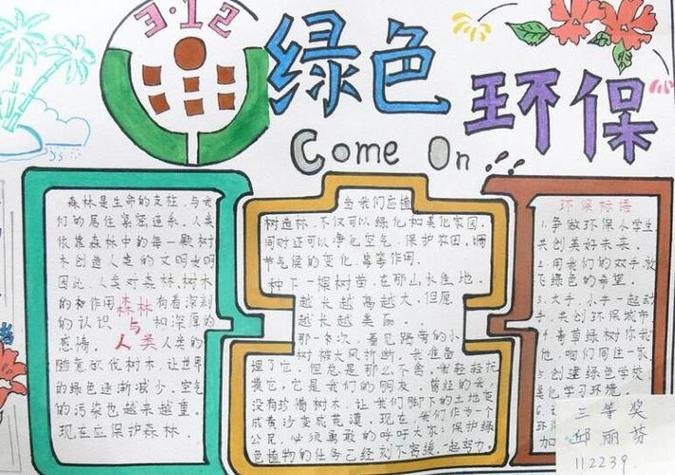 3·12
绿色
环保
Come On !!!
森林是生命的支柱,与我
们的居住紧密连系。人类
依靠森林中的每一颗树
木创造人类的文明文明
因此,人类对森林树木
的和作用森林有着深刻
的认识 与 和深厚的
感情。人类人类的
随意砍伐树木,让世界
的绿色逐渐减少,空气
的污染也越来越重。
现在应保护森林。
当我们应植
树造林,不仅可以绿化和美化家园,
同时还可以净化空气,保护农田,调
节气候的变化,
种下一棵树苗,在那山水佳地。
越长越高越大,但愿
越长越美丽.
那一次,看见路旁的小
树被大风折断。我准备
埋了它,但总是那么不舍。我轻轻抚
摸它,它是我们的明友,曾经的去,
没有珍惜树木,让我们脚下的土地变
成黄沙变成荒漠,现在,我们作为一个
公民,必须勇敢的呼吁大家:保护绿
色植物的任务己经刻不容缓,一起努力。
环保标语
1.争做环保小学生
共创美好未来。
2.用我们的双手放
飞绿色的希望。
3.大手,小手一起动
手,共创环保城市
4.青草绿树你我
他,咱们同住一家
5.创建绿色学校
美化学习环境。
6.
加
三等奖
邱丽芬
112239.